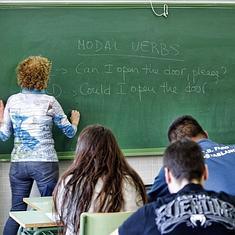 MODAL VERBS
Can I open the door, please?
D. Could I open the door